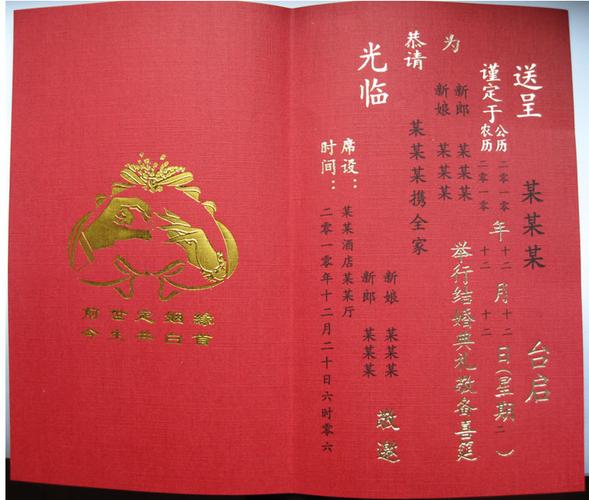 送呈 某某某 台启
谨定于 公历 二零一零 年 十二 月 十二 日(星期二)
农历 二零一零 十二 十二
为 新郎 某某某 举行结婚典礼敬备喜筵
新娘 某某某
恭请 某某某携全家
光临
新娘 某某某 敬邀
新郎 某某某
席设：某某酒店某某厅
时间：二零一零年十二月二十日六时零六
前世定姻缘
今生共白首